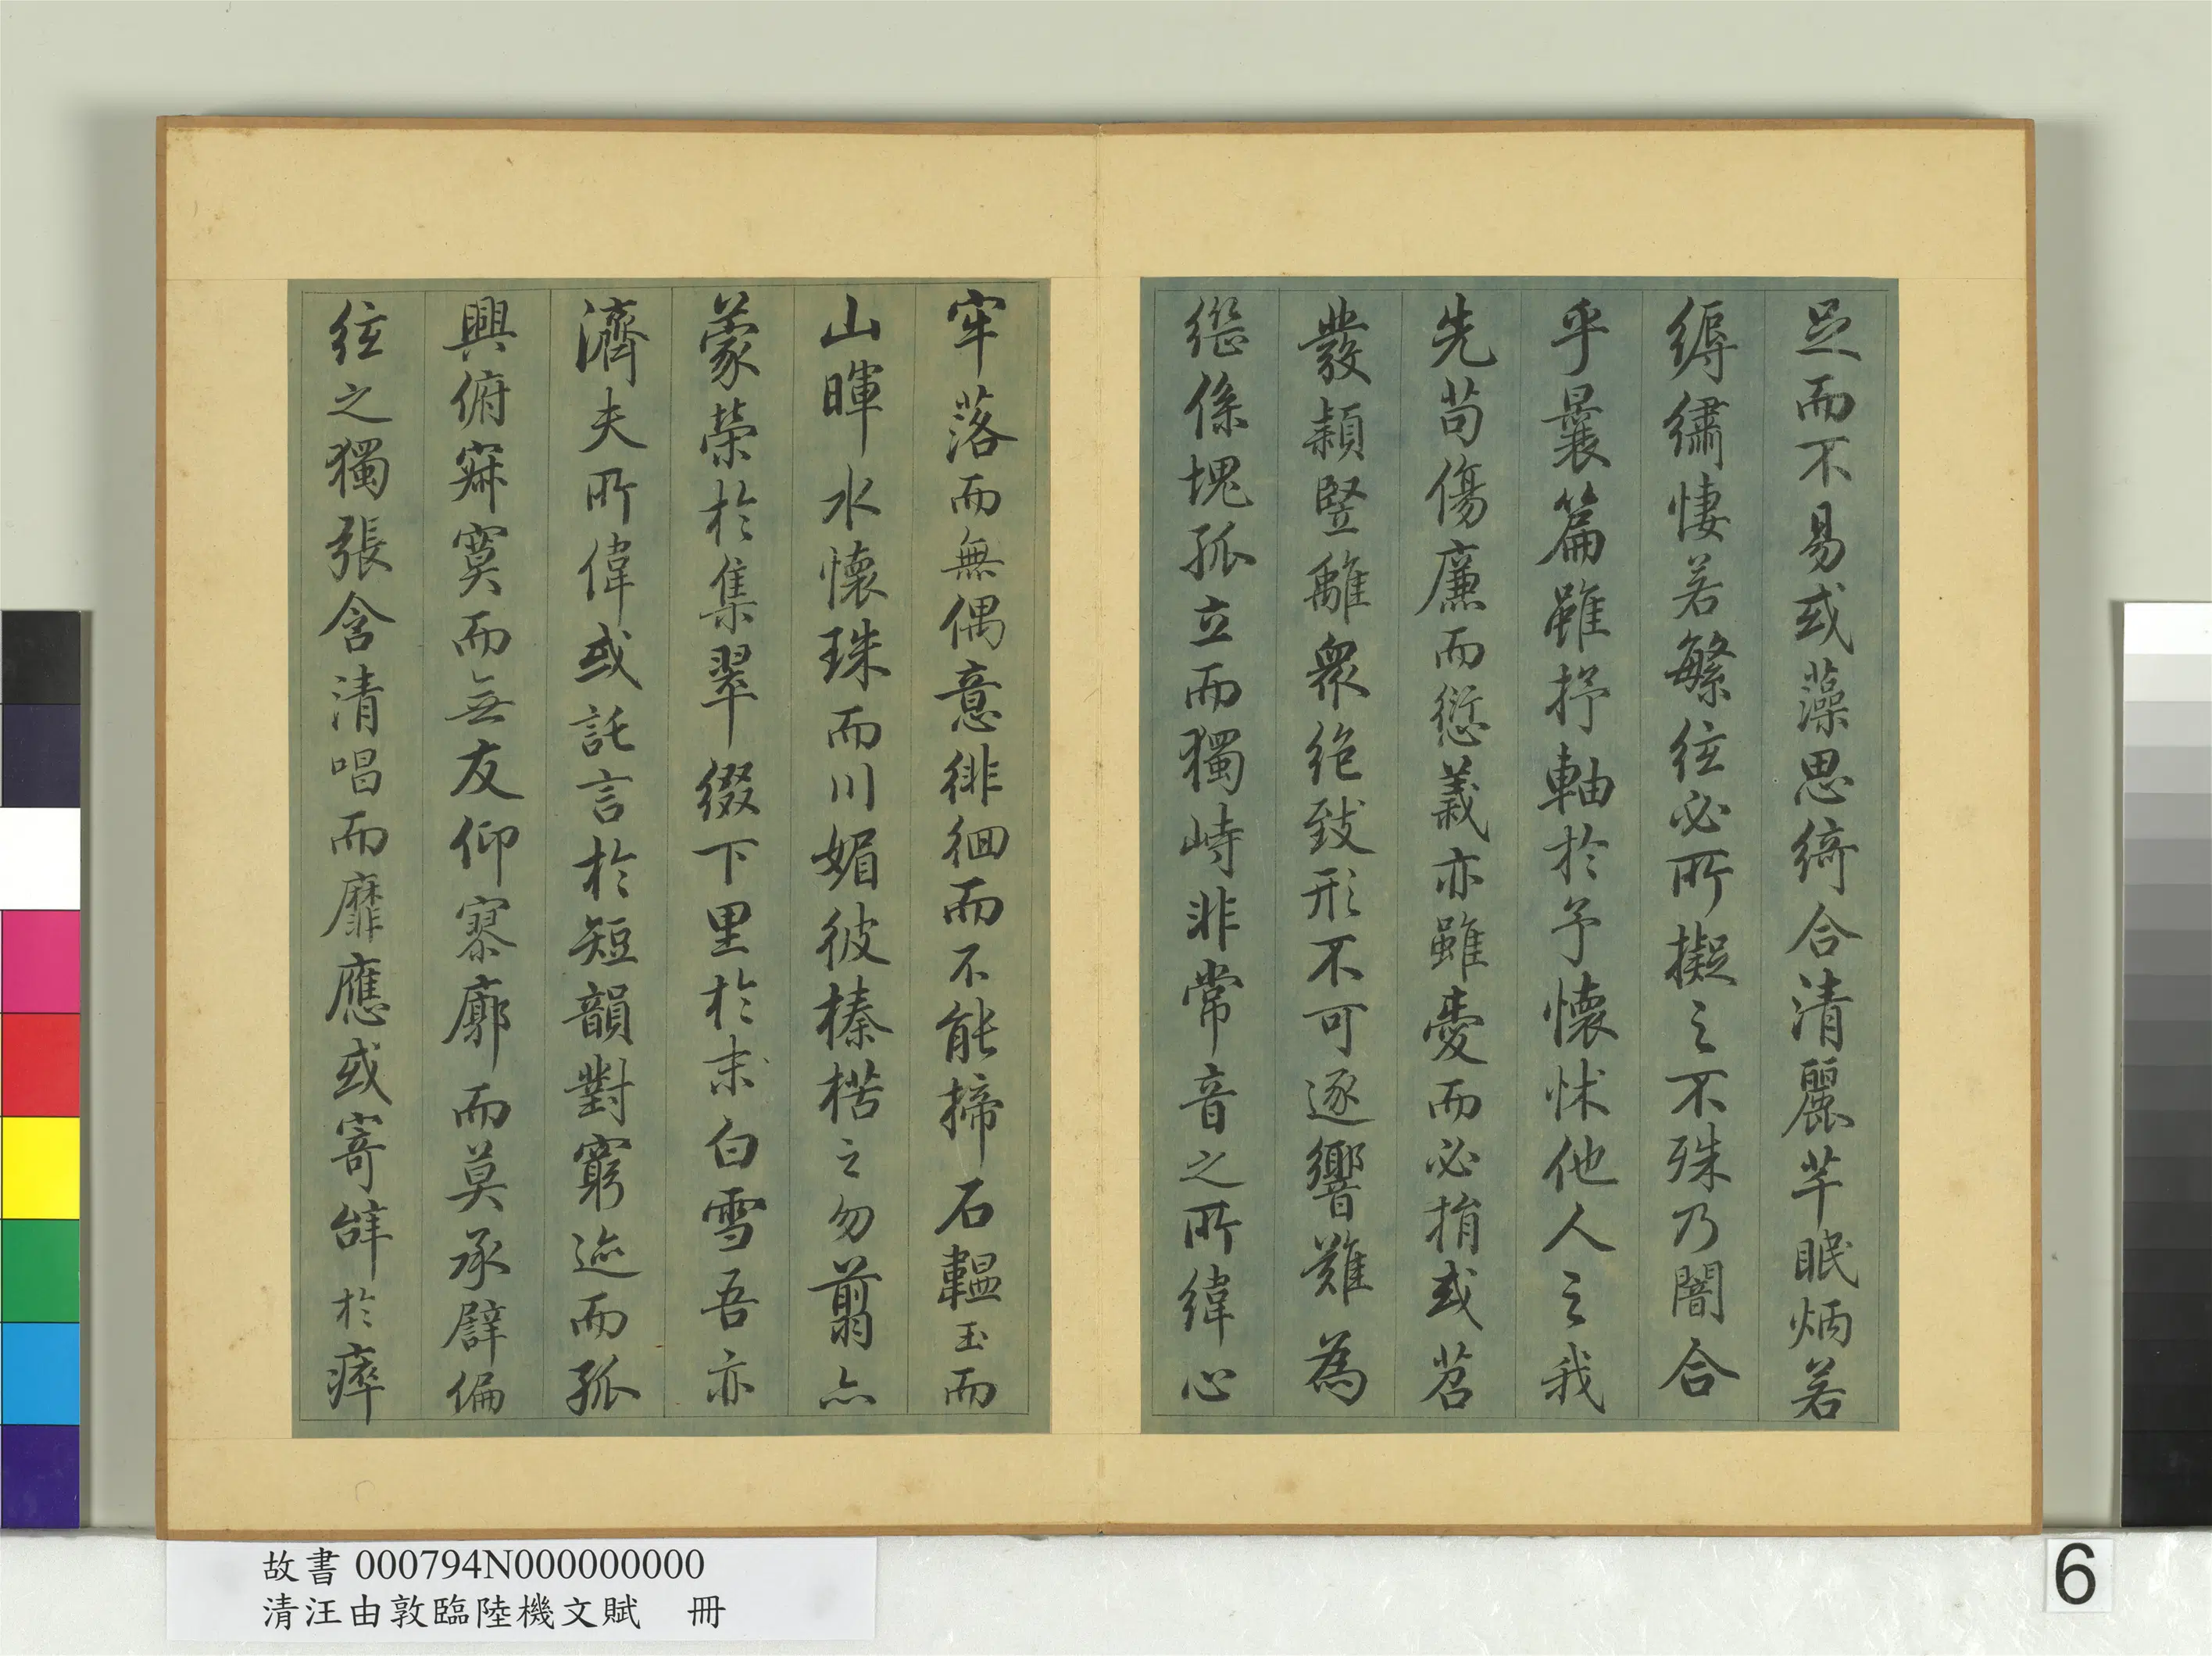 足而不易或藻思綺合清麗芊眠炳若
縟繡悽若繁絃必所擬之不殊乃闇合
乎曩篇雖抒軸於予懷怵他人之我
先苟傷廉而愆義亦雖愛而必捐或苕
發穎豎離衆絶致形不可逐響難為
係塊孤立而獨峙非常音之所緯心
牢落而無偶意徘徊而不能揥石韞玉而
山暉水懷珠而川媚彼榛楛之勿翦亦
蒙榮於集翠綴下里於白雪吾亦
濟夫所偉或託言於短韻對窮迹而孤
興俯寂寞而無友仰寥廓而莫承譬偏
絃之獨張含清唱而靡應或寄辭於瘁
故書 000794N000000000
清汪由敦臨陸機文賦 冊
6